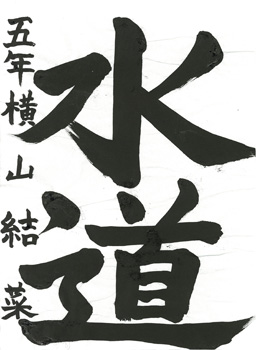 水道
五年横山結菜